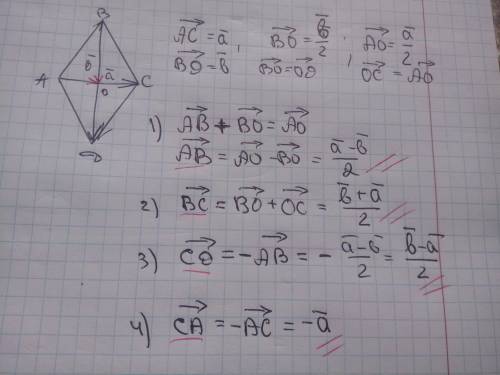 B
b̅
A a̅ C
O
D
A͞C⃗ = a̅ ; B͞O⃗ = b̅/2 ; A͞O⃗ = a̅/2
B͞D⃗ = b̅ B͞O⃗ = O͞D⃗ ; O͞C⃗ = A͞O⃗
1) A͞B⃗ + B͞O⃗ = A͞O⃗
A͞B⃗ = A͞O⃗ - B͞O⃗ = (a̅ - b̅)/2
2) B͞C⃗ = B͞O⃗ + O͞C⃗ = (b̅ + a̅)/2
3) C͞D⃗ = - A͞B⃗ = - (a̅ - b̅)/2 = (b̅ - a̅)/2
4) C͞A⃗ = - A͞C⃗ = - a̅